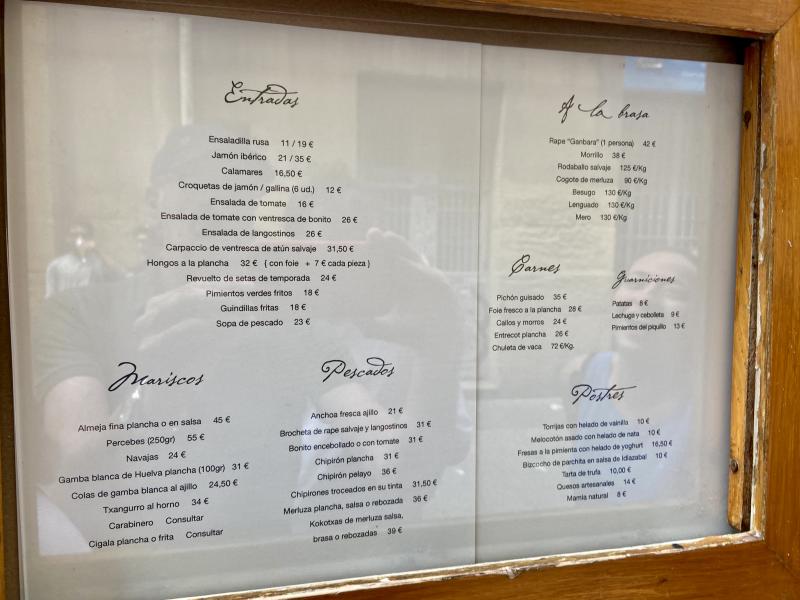 Entradas
Ensaladilla rusa 11 / 19 €
Jamón ibérico 21 / 35 €
Calamares 16,50 €
Croquetas de jamón / gallina (6 ud.) 12 €
Ensalada de tomate 16 €
Ensalada de tomate con ventresca de bonito 26 €
Ensalada de langostinos 26 €
Carpaccio de ventresca de atún salvaje 31,50 €
Hongos a la plancha 32 € ( con foie + 7 € cada pieza )
Revuelto de setas de temporada 24 €
Pimientos verdes fritos 18 €
Guindillas fritas 18 €
Sopa de pescado 23 €
Mariscos
Almeja fina plancha o en salsa 45 €
Percebes (250gr) 55 €
Navajas 24 €
Gamba blanca de Huelva plancha (100gr) 31 €
Colas de gamba blanca al ajillo 24,50 €
Txangurro al horno 34 €
Carabinero Consultar
Cigala plancha o frita Consultar
Pescados
Anchoa fresca ajillo 21 €
Brocheta de rape salvaje y langostinos 31 €
Bonito encebollado o con tomate 31 €
Chipirón plancha 31 €
Chipirón pelayo 36 €
Chipirones troceados en su tinta 31,50 €
Merluza plancha, salsa o rebozada 36 €
Kokotxas de merluza salsa,
brasa o rebozadas 39 €
A la brasa
Rape "Ganbara" (1 persona) 42 €
Morrillo 38 €
Rodaballo salvaje 125 €/Kg
Cogote de merluza 90 €/Kg
Besugo 130 €/Kg
Lenguado 130 €/Kg
Mero 130 €/Kg
Carnes
Pichón guisado 35 €
Foie fresco a la plancha 28 €
Callos y morros 24 €
Entrecot plancha 26 €
Chuleta de vaca 72 €/Kg.
Guarniciones
Patatas 8 €
Lechuga y cebolleta 9 €
Pimientos del piquillo 13 €
Postres
Torrijas con helado de vainilla 10 €
Melocotón asado con helado de nata 10 €
Fresas a la pimienta con helado de yoghurt 16,50 €
Bizcocho de parchita en salsa de Idiazabal 10 €
Tarta de trufa 10,00 €
Quesos artesanales 14 €
Mamia natural 8 €